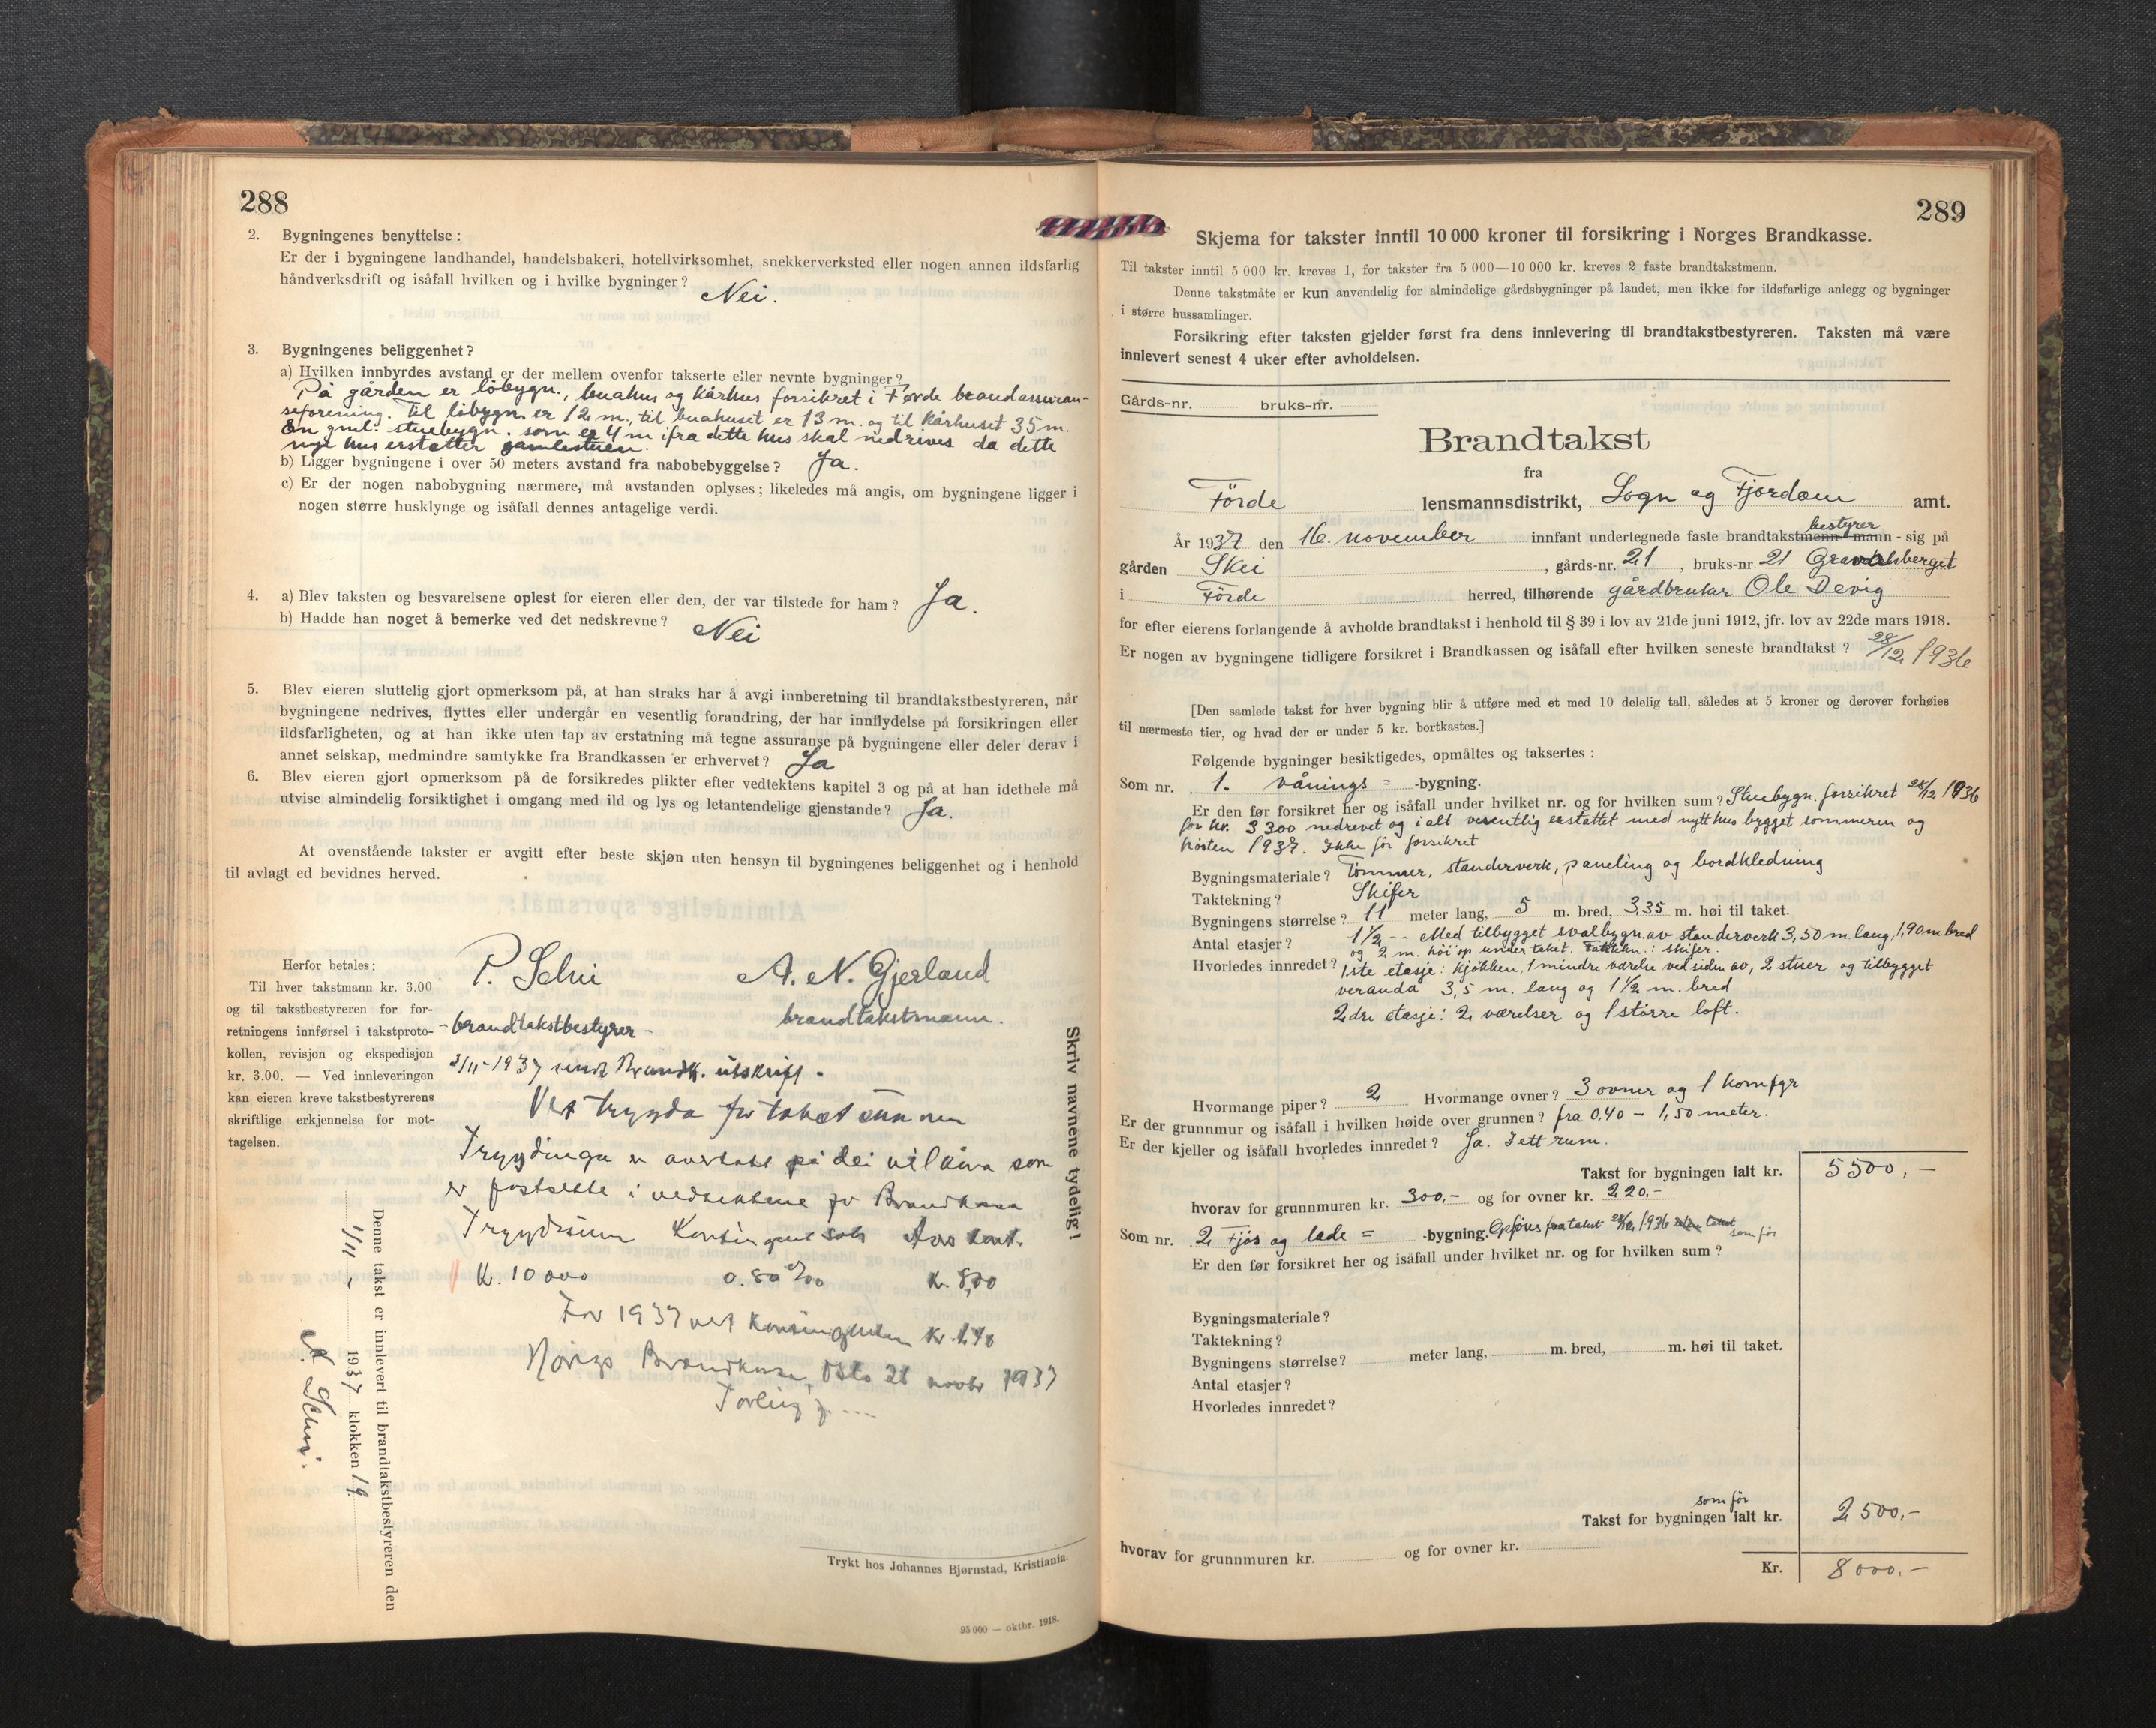 288
2. Bygningenes benyttelse :
Er der i bygningene landhandel, handelsbakeri, hotellvirksomhet, snekkerverksted eller nogen annen ildsfarlig
håndverksdrift og isåfall hvilken og i hvilke bygninger? Nei.
3. Bygningenes beliggenhet?
a) Hvilken innbyrdes avstand er der mellem ovenfor takserte eller nevnte bygninger?
På gården er løbygn., buahus og kårhus forsikret i Førde brandassuran-
seforening. Til løbygn er 12 m., til buahuset er 13 m. og til kårhuset 35 m.
En gml. stuebygn. som er 4 m ifra dette hus skal nedrives da dette
nye hus erstatter gamlestuen.
b) Ligger bygningene i over 50 meters avstand fra nabobebyggelse? Ja.
c) Er der nogen nabobygning nærmere, må avstanden oplyses; likeledes må angis, om bygningene ligger i
nogen større husklynge og isåfall dennes antagelige verdi.
4. a) Blev taksten og besvarelsene oplest for eieren eller den, der var tilstede for ham? Ja.
b) Hadde han noget å bemerke ved det nedskrevne? Nei
5. Blev eieren sluttelig gjort opmerksom på, at han straks har å avgi innberetning til brandtakstbestyreren, når
bygningene nedrives, flyttes eller undergår en vesentlig forandring, der har innflydelse på forsikringen eller
ildsfarligheten, og at han ikke uten tap av erstatning må tegne assuranse på bygningene eller deler derav i
annet selskap, medmindre samtykke fra Brandkassen er erhvervet? Ja
6. Blev eieren gjort opmerksom på de forsikredes plikter efter vedtektens kapitel 3 og på at han idethele må
utvise almindelig forsiktighet i omgang med ild og lys og letantendelige gjenstande? Ja.
At ovenstående takster er avgitt efter beste skjøn uten hensyn til bygningenes beliggenhet og i henhold
til avlagt ed bevidnes herved.
Herfor betales:
Til hver takstmann kr. 3.00
og til takstbestyreren for for-
retningens innførsel i takstproto-
kollen, revisjon og ekspedisjon
kr. 3.00. — Ved innleveringen
kan eieren kreve takstbestyrerens
skriftlige erkjennelse for mot-
tagelsen.
P. Selvi A. N. Gjerland
- brandtakstbestyrer - brandtakstmann.
3/11-1937 sendt Brandk. utskrift.
Vert trygda for takst summen
Trygdinga er overtaki på dei vilkåra som
er fastsette i vedtektene for Brandkassa
Trygdsum Kontingentsats Års kont.
K. 10 000 0.80 ‰ K. 8,00
For 1937 vert kontingenten Kr. 1.40
Norigs Brandkasse, Oslo 26 novbr 1937
Skriv navnene tydelig!
Denne takst er innlevert til brandtakstbestyreren den
1/11 - 1937 klokken 19.
P. Selvi.
Trykt hos Johannes Bjørnstad, Kristiania.
95 000 — oktbr. 1918.
289
Skjema for takster inntil 10 000 kroner til forsikring i Norges Brandkasse.
Til takster inntil 5 000 kr. kreves 1, for takster fra 5 000—10 000 kr. kreves 2 faste brandtakstmenn.
Denne takstmåte er kun anvendelig for almindelige gårdsbygninger på landet, men ikke for ildsfarlige anlegg og bygninger
i større hussamlinger.
Forsikring efter taksten gjelder først fra dens innlevering til brandtakstbestyreren. Taksten må være
innlevert senest 4 uker efter avholdelsen.
Gårds-nr. bruks-nr.
Brandtakst
fra
Förde lensmannsdistrikt, Sogn og Fjordane amt.
bestyrer
År 1937 den 16. november innfant undertegnede faste brandtakstmenn-mann - sig på
gården Skei, gårds-nr. 21, bruks-nr. 21
i Förde herred, tilhørende gårdbruker Ole Devig
for efter eierens forlangende å avholde brandtakst i henhold til § 39 i lov av 21de juni 1912, jfr. lov av 22de mars 1918.
Er nogen av bygningene tidligere forsikret i Brandkassen og isåfall efter hvilken seneste brandtakst ? 28/12 1936
[Den samlede takst for hver bygning blir å utføre med et med 10 delelig tall, således at 5 kroner og derover forhøies
til nærmeste tier, og hvad der er under 5 kr. bortkastes.]
Følgende bygninger besiktigedes, opmåltes og taksertes :
Som nr. 1. vånings = -bygning.
Er den før forsikret her og isåfall under hvilket nr. og for hvilken sum? Stuebygn. forsikret 28/12 1936
for kr. 3300 nedrevet og i alt vesentlig erstattet med nytt hus bygget sommeren og
høsten 1937. Ikke før forsikret
Bygningsmateriale? Tömmer, standerverk, paneling og bordkledning
Taktekning? Skifer
Bygningens størrelse? 11 meter lang, 5 m. bred, 3,35 m. høi til taket.
Antal etasjer? 1½ -- Med tilbygget svalbygn. av standerverk 3,50 m. lang, 1,90 m bred
og 2 m. höi op under taket. Taktekn.: skifer.
Hvorledes innredet? 1ste etasje: kjökken, 1 mindre værelse ved siden av, 2 stuer og tilbygget
veranda 3,5 m. lang og 1½ m. bred
2dre etasje: 2 værelser og 1 större loft.
Hvormange piper? 2 Hvormange ovner? 3 ovner og 1 komfyr
Er der grunnmur og isåfall i hvilken høide over grunnen? fra 0,40 - 1,50 meter.
Er der kjeller og isåfall hvorledes innredet? Ja. I ett rum.
Takst for bygningen ialt kr. 5500,-
hvorav for grunnmuren kr. 300,- og for ovner kr. 220.-
Som nr. 2 Fjös og lade = -bygning. Opföres fra takst 28/12 1936 som før.
Er den før forsikret her og isåfall under hvilket nr. og for hvilken sum ?
Bygningsmateriale ?
Taktekning ?
Bygningens størrelse? meter lang, m. bred, m. høi til taket.
Antal etasjer ?
Hvorledes innredet?
som før
Takst for bygningen ialt kr. 2500,-
hvorav for grunnmuren kr. og for ovner kr.
Kr. 8000.-